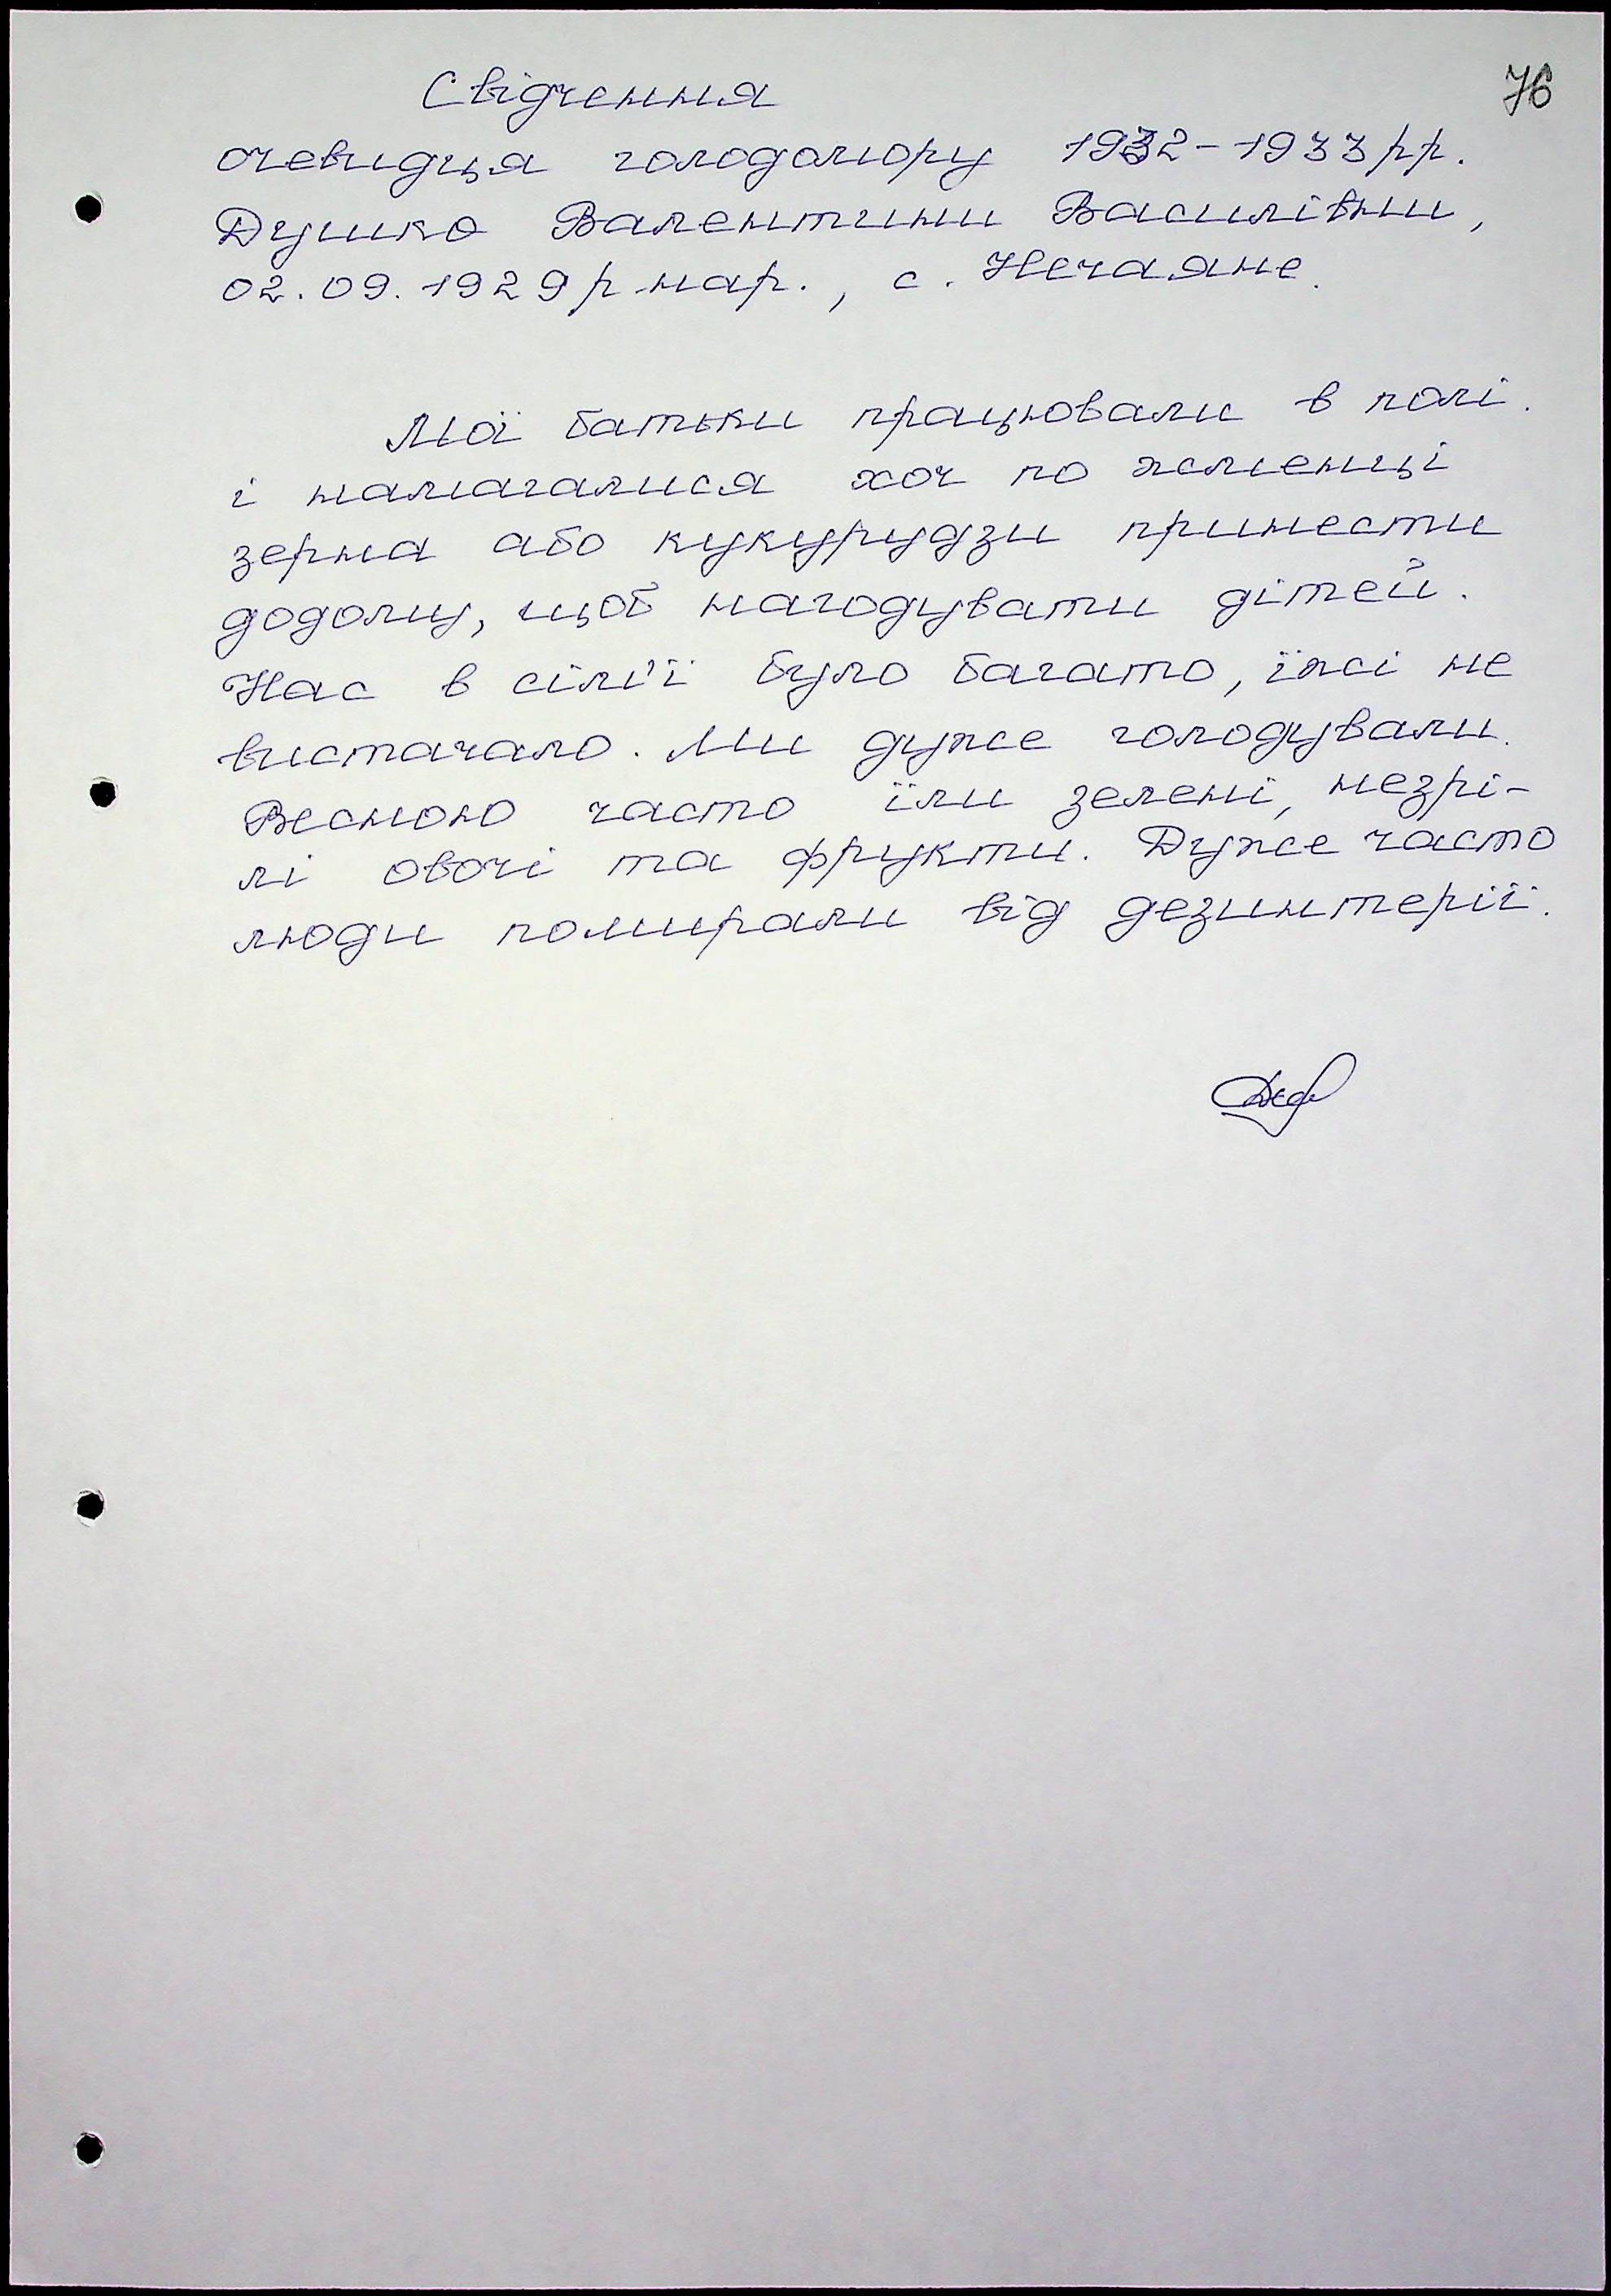 76
Свідчення
очевидця голодомору 1932-1933 рр.
Душко Валентини Василівни,
02.09.1929 р нар., с. Нечаяне.
Мої батьки працювали в полі.
і намагалися хоч по жменці
зерна або кукурудзи принести
додому, щоб нагодувати дітей.
Нас в сім'ї було багато, їжі не
вистачало. Ми дуже голодували.
Весною часто їли зелені, незрі-
лі овочі та фрукти. Дуже часто
люди помирали від дезинтерії.